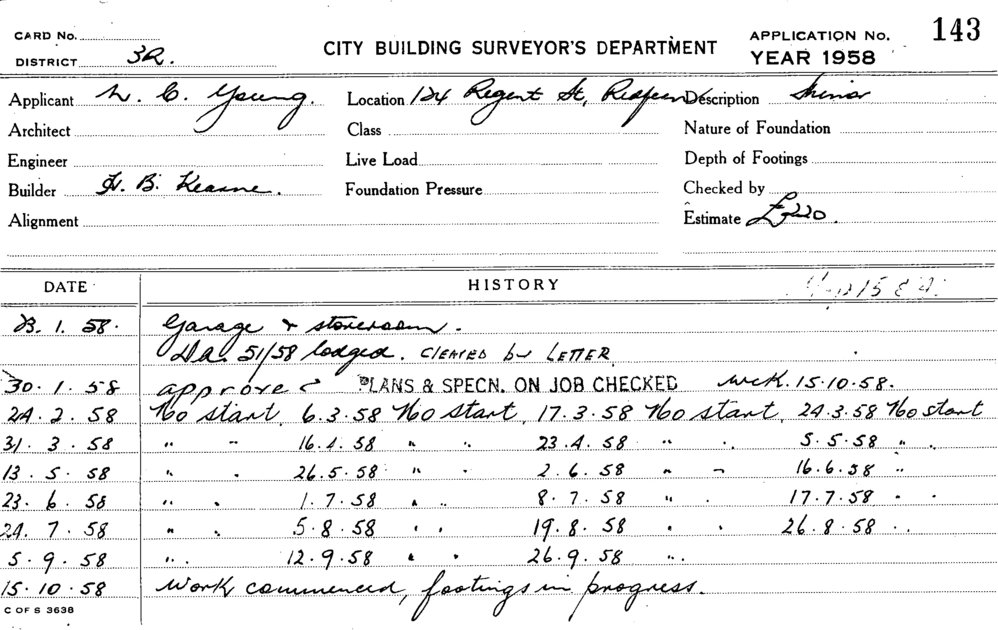 CARD No. CITY BUILDING SURVEYOR'S DEPARTMENT APPLICATION No. 143
DISTRICT 3R. YEAR 1958
Applicant C. Young. Location 124 Regent St, Redfern Description Minor
Architect Class Nature of Foundation
Engineer Live Load Depth of Footings
Builder H. B. Kearne. Foundation Pressure Checked by
Alignment Estimate £220.
DATE HISTORY
23. 1. 58. Garage & storeroom.
D.a. 51/58 lodged. CLEARED by LETTER
30. 1. 58 approved PLANS & SPECN. ON JOB CHECKED 15.10.58.
24. 2. 58 No start, 6.3.58 No start, 17.3.58 No start, 24.3.58 No start
31. 3. 58 " " 16.4.58 " " 23.4.58 " " 5.5.58 " "
13. 5. 58 " " 26.5.58 " " 2.6.58 " " 16.6.58 "
23. 6. 58 " " 1.7.58 " " 8.7.58 " " 17.7.58 " "
24. 7. 58 " " 5.8.58 " " 19.8.58 " " 26.8.58 " "
5. 9. 58 " " 12.9.58 " " 26.9.58 " "
15. 10. 58 Work commenced, footings in progress.
C OF S 3638